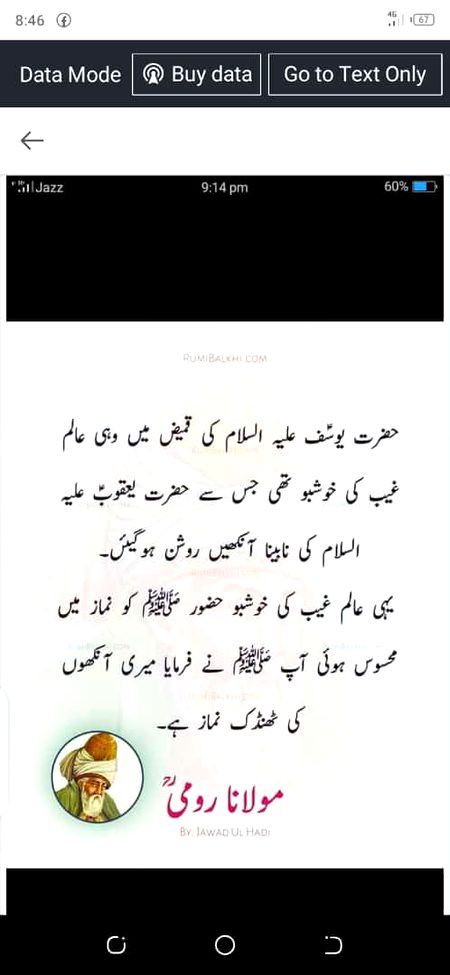 8:46
4G
67
Data Mode
Buy data
Go to Text Only
Jazz
9:14 pm
60%
RUMIBALKHI.COM
حضرت یوسفؑ علیہ السلام کی قمیض میں وہی عالم
غیب کی خوشبو تھی جس سے حضرت یعقوبؑ علیہ
السلام کی نابینا آنکھیں روشن ہوگیئں۔
یہی عالم غیب کی خوشبو حضور ﷺ کو نماز میں
محسوس ہوئی آپ ﷺ نے فرمایا میری آنکھوں
کی ٹھنڈک نماز ہے۔
مولانا رومیؒ
BY: JAWAD UL HADI